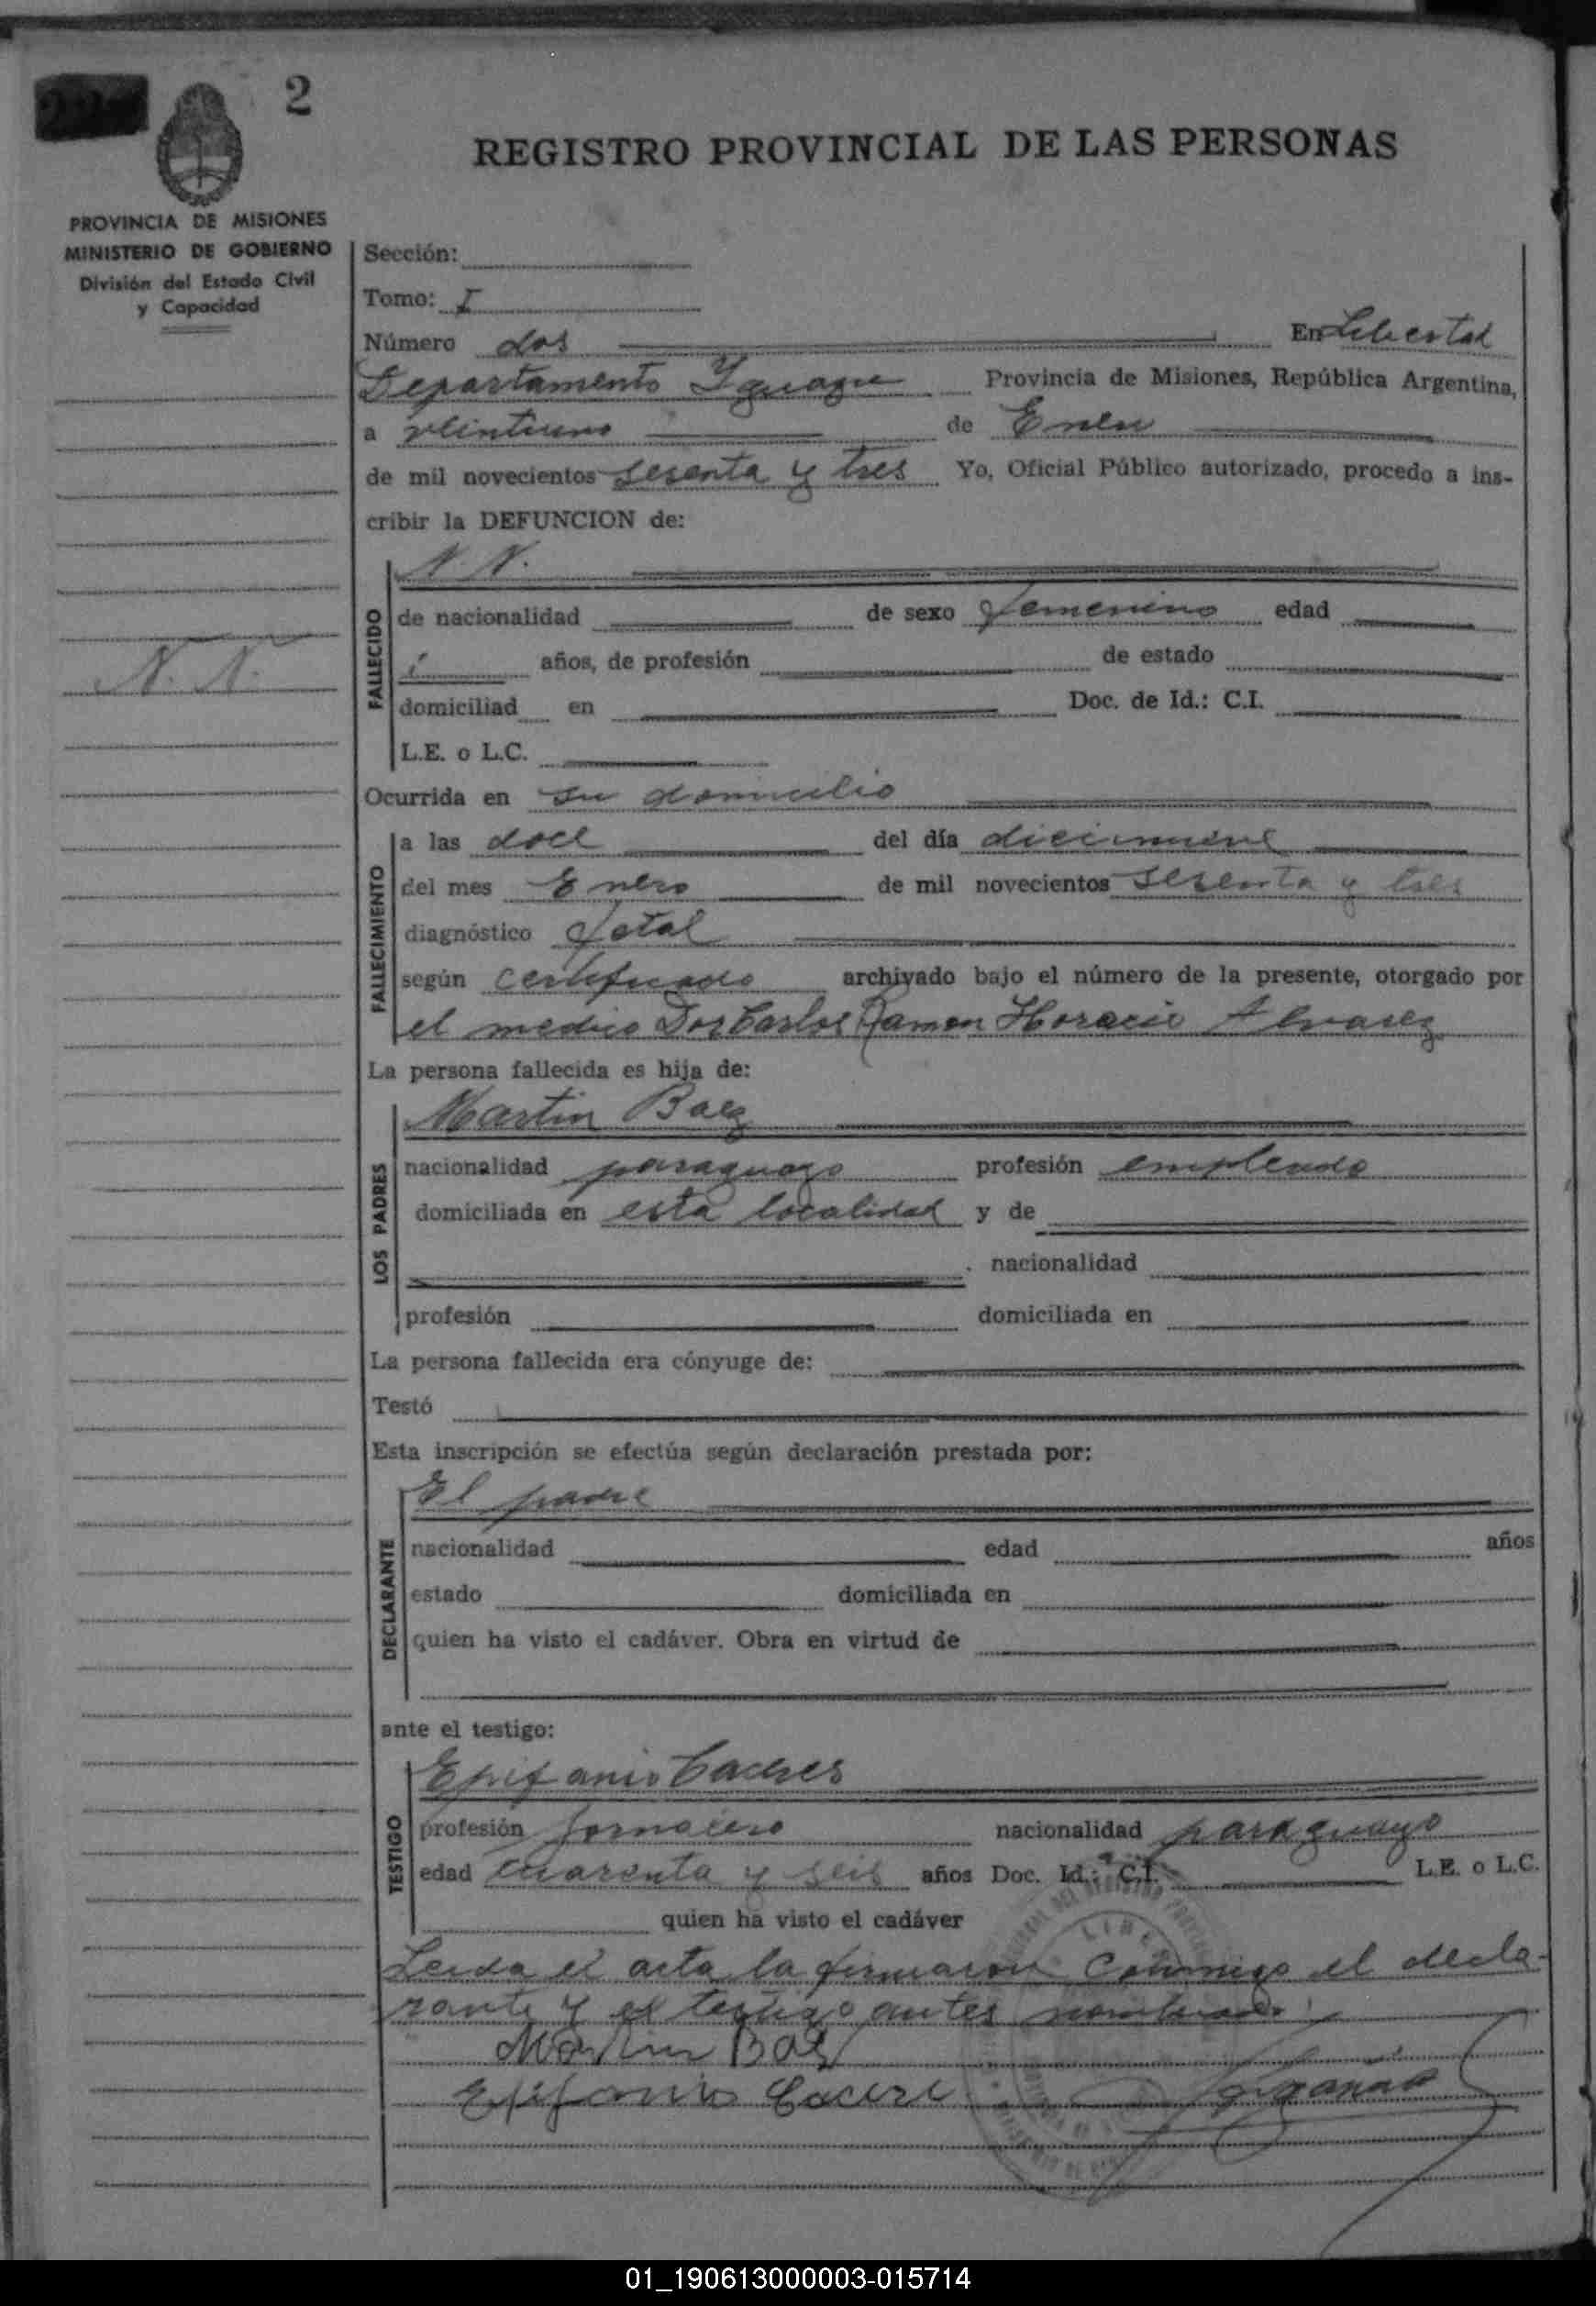 2
REGISTRO PROVINCIAL DE LAS PERSONAS
PROVINCIA DE MISIONES
MINISTERIO DE GOBIERNO
División del Estado Civil
y Capacidad
N. N.
Sección:
Tomo: I
Número dos En Libertad
Departamento Yguazu Provincia de Misiones, República Argentina,
a veintiuno de Enero
de mil novecientos sesenta y tres Yo, Oficial Público autorizado, procedo a ins-
cribir la DEFUNCION de:
N. N.
FALLECIDO
de nacionalidad de sexo femenino edad
años, de profesión de estado
domiciliad en Doc. de Id.: C.I.
L.E. o L.C.
Ocurrida en su domicilio
FALLECIMIENTO
a las doce del día diecinueve
del mes Enero de mil novecientos sesenta y tres
diagnóstico fetal
según certificado archivado bajo el número de la presente, otorgado por
el medico Carlos Ramon Horacio Alvarez
La persona fallecida es hija de:
LOS PADRES
Martin Baez
nacionalidad paraguayo profesión empleado
domiciliada en esta localidad y de
nacionalidad
profesión domiciliada en
La persona fallecida era cónyuge de:
Testó
Esta inscripción se efectúa según declaración prestada por:
DECLARANTE
El padre
nacionalidad edad años
estado domiciliada en
quien ha visto el cadáver. Obra en virtud de
ante el testigo:
TESTIGO
Epifanio Caceres
profesión jornalero nacionalidad paraguayo
edad cuarenta y seis años Doc. Id.: C.I. L.E. o L.C.
quien ha visto el cadáver
Leida el acta la firmaron conmigo el decla-
rante y el testigo antes nombrado
Martin Baez
Epifanio Cacere
01_190613000003-015714